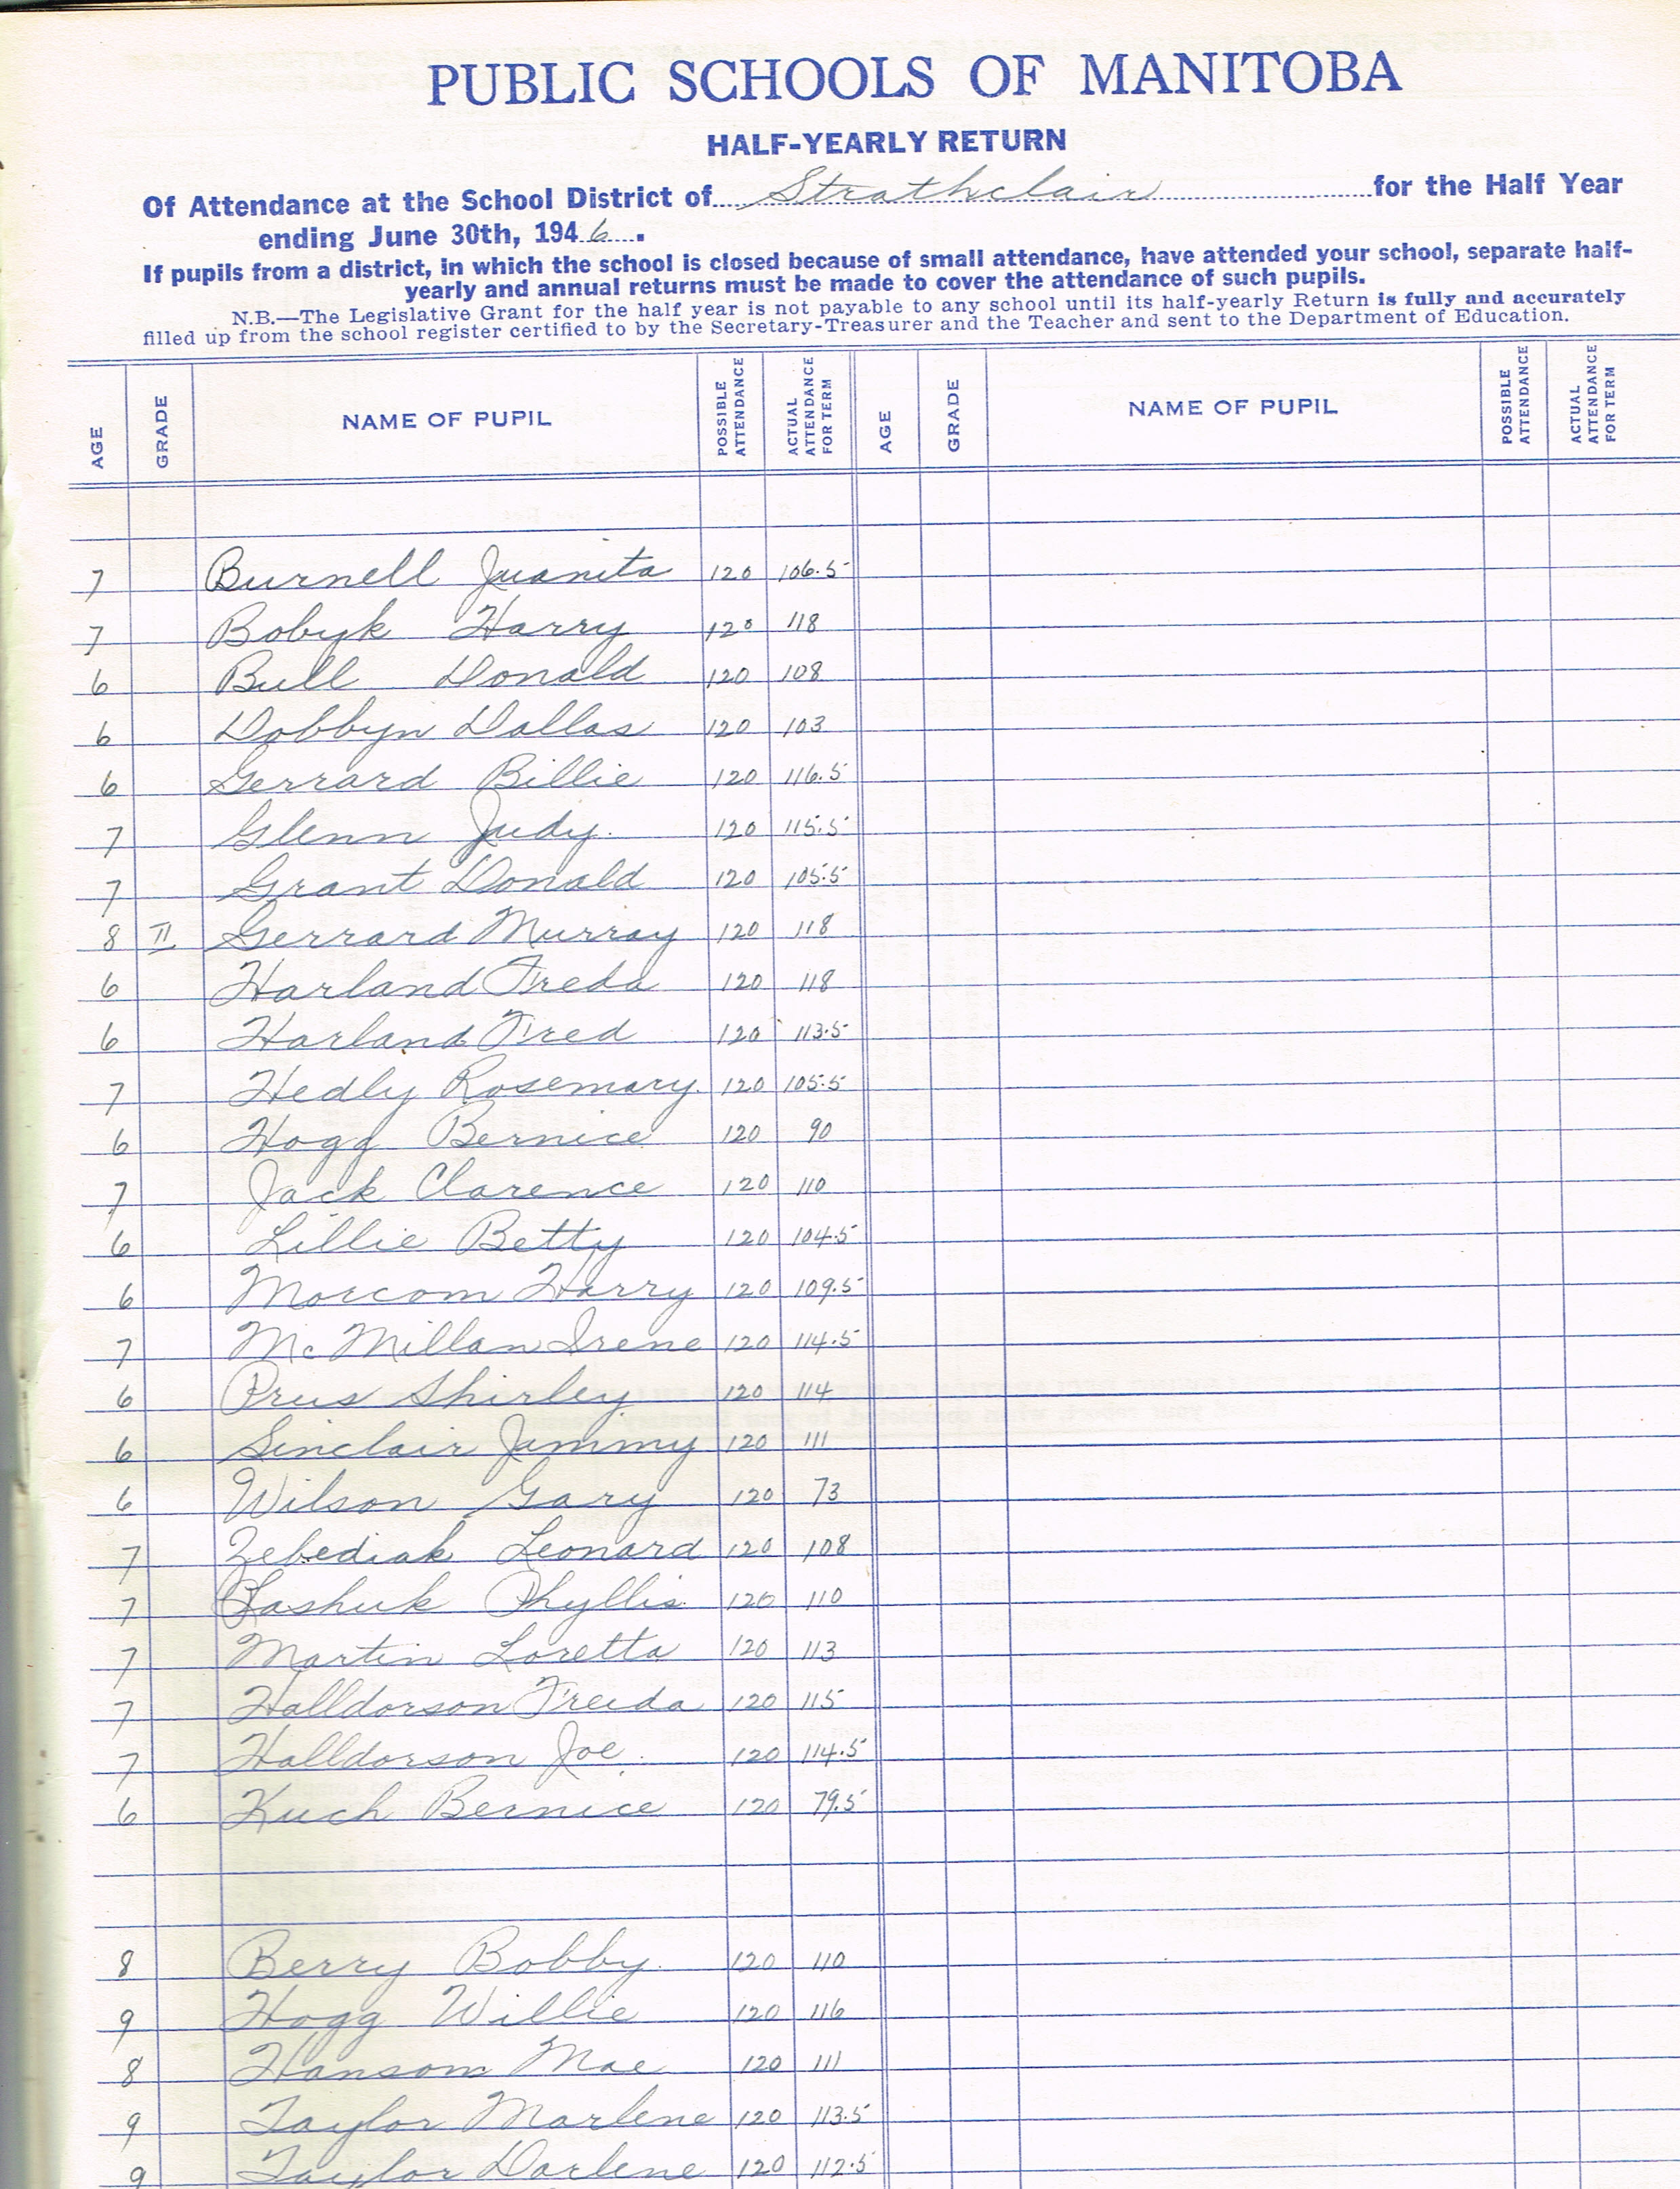 PUBLIC SCHOOLS OF MANITOBA
HALF-YEARLY RETURN
Of Attendance at the School District of Strathclair for the Half Year
ending June 30th, 1946.
If pupils from a district, in which the school is closed because of small attendance, have attended your school, separate half-
yearly and annual returns must be made to cover the attendance of such pupils.
N.B.—The Legislative Grant for the half year is not payable to any school until its half-yearly Return is fully and accurately
filled up from the school register certified to by the Secretary-Treasurer and the Teacher and sent to the Department of Education.
AGE GRADE NAME OF PUPIL POSSIBLE ATTENDANCE ACTUAL ATTENDANCE FOR TERM AGE GRADE NAME OF PUPIL POSSIBLE ATTENDANCE ACTUAL ATTENDANCE FOR TERM
7 Burnell Juanita 120 106.5
7 Bobyk Harry 120 118
6 Bull Donald 120 108
6 Dobbyn Dallas 120 103
6 Gerrard Billie 120 116.5
7 Glenn Judy. 120 115.5
7 Grant Donald 120 105.5
8 II Gerrard Murray 120 118
6 Harland Freda 120 118
6 Harland Fred 120 113.5
7 Hedly Rosemary. 120 105.5
6 Hogg Bernice 120 90
7 Jack Clarence 120 110
6 Lillie Betty 120 104.5
6 Morcom Harry 120 109.5
7 McMillan Irene 120 114.5
6 Prus Shirley 120 114
6 Sinclair Jimmy 120 111
6 Wilson Gary 120 73
7 Zebediak Leonard 120 108
7 Lashuk Phyllis 120 110
7 Martin Loretta 120 113
7 Halldorson Freida 120 115
7 Halldorson Joe. 120 114.5
6 Kuch Bernice 120 79.5
8 Berry Bobby. 120 110
9 Hogg Willie 120 116
8 Hansom Mae 120 111
9 Taylor Marlene 120 113.5
9 Taylor Darlene 120 112.5